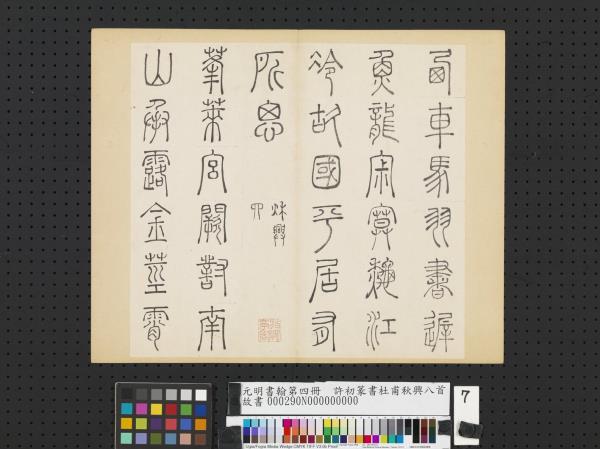 西車馬羽書遲
魚龍寂寞秋江
冷故國平居有
所思
秋興
四
蓬萊宮闕對南
山承露金莖霄
元明書翰第四冊 許初篆書杜甫秋興八首
故書 000290N000000000
7